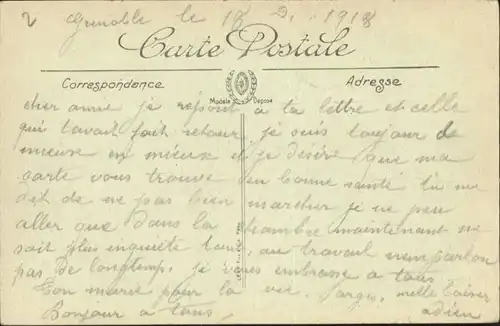 2 Grenoble le 18 D. 1918
Carte Postale
Correspondance
Adresse
Modèle Déposé
cher amie je répont a ta lettre et celle
qui tavait fait retour, je suis toujour de
mieux en mieux et je désire que ma
carte vous trouve en bonne santé tu me
dit de ne pas bien marcher je ne peu
aller que dans la chambre maintenant ne
soit plus enquiete au travail nen parlon
pas de longtemp, je vous embrasse a tous
Ton mari pour la vie. mille baisers
Bonjour a tous, adieu